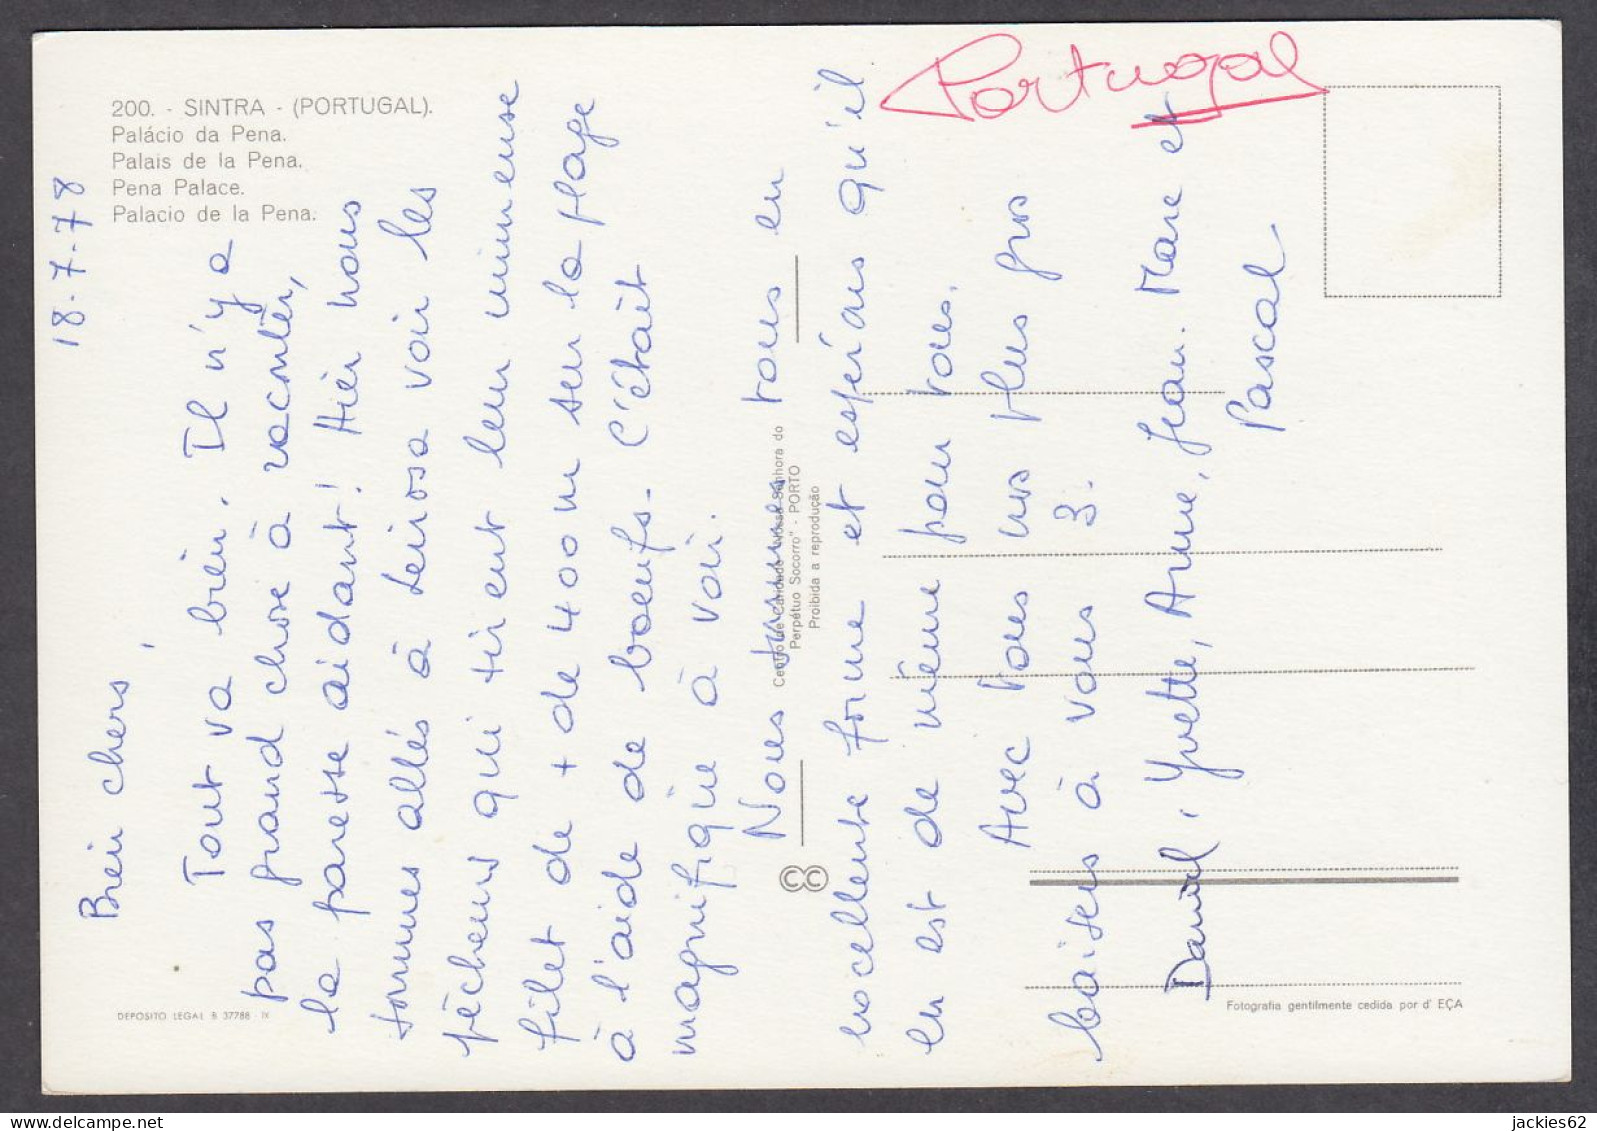 200. - SINTRA - (PORTUGAL).
Palácio da Pena.
Palais de la Pena.
Pena Palace.
Palacio de la Pena.
Portugal
18.7.78
Bien chers,
Tout va bien. Il n'y a
pas grand chose à raconter,
la paresse aidant! Hier nous
sommes allés à Leirosa voir les
pêcheurs qui tirent leur immense
filet de + de 400m sur la plage
à l'aide de boeufs. C'était
magnifique à voir.
Nous sommes tous en
excellente forme et espérons qu'il
en est de même pour vous.
Avec tous nos plus gros
baisers à vous 3.
Daniel, Yvette, Anne, Jean. Marc et
Pascal
Centro de Caridade "Nossa Senhora do
Perpétuo Socorro" - PORTO
Proibida a reprodução
DEPOSITO LEGAL B 37788 - IX
Fotografia gentilmente cedida por d' EÇA
jackies62